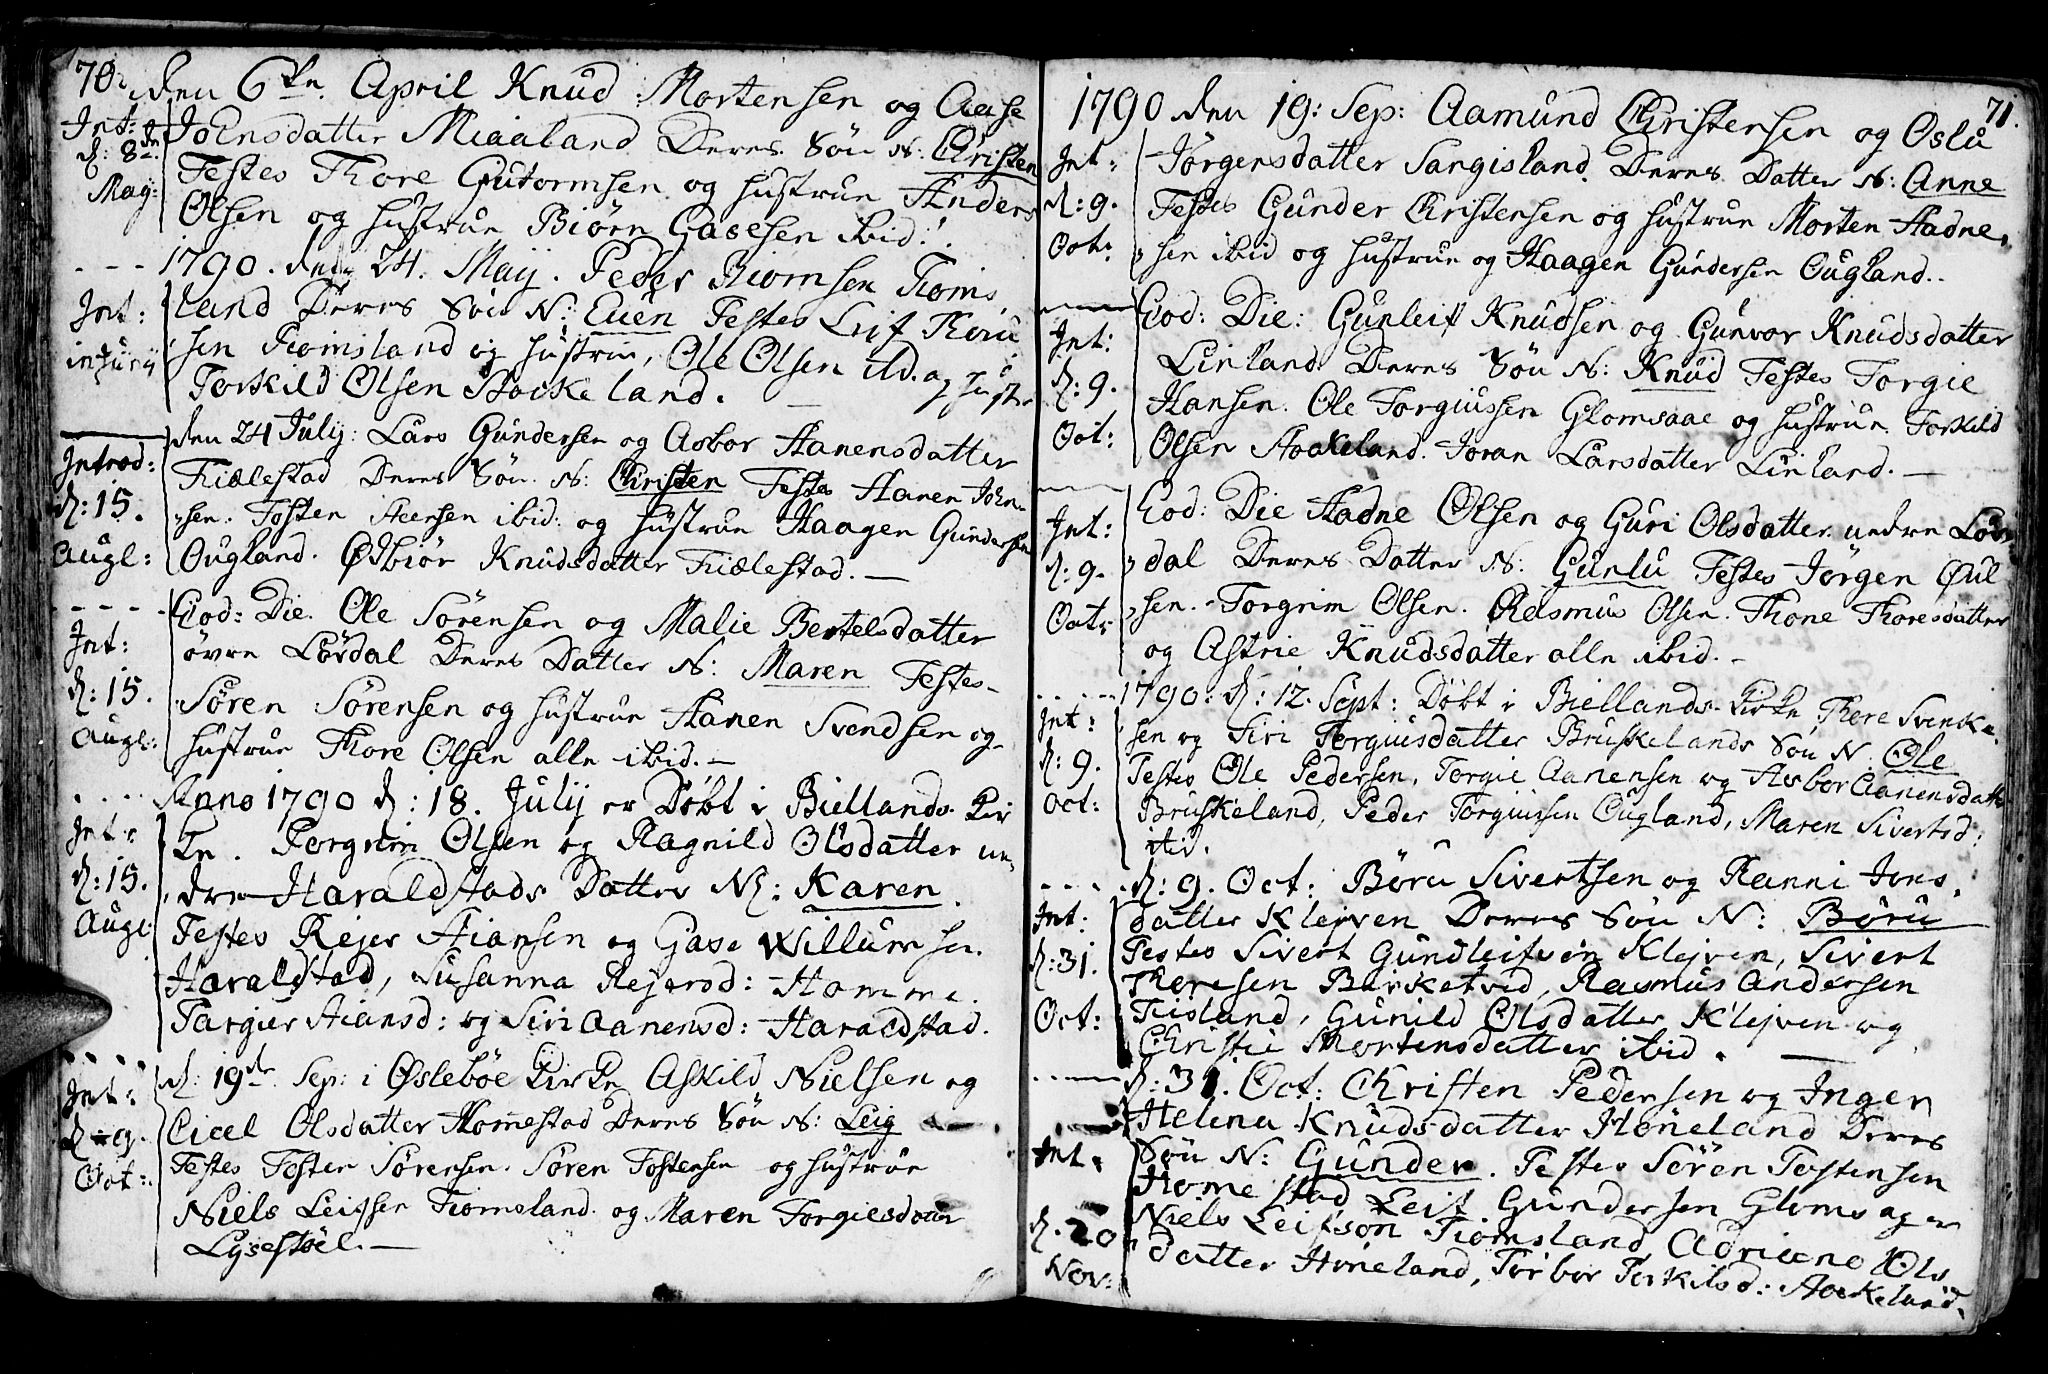 70.
den 6te April Knud Mortensen og Aase
Int: Johnsdatter Miaaland Deres Søn N: Christen
d: 8de Testes Thore Gutormsen og hustrue Anders
May: Olsen og hustrue Biørn Gasesen ibid:
1790. den 24. Maij. Peder Biornsen Tioms
Int: land Deres Søn N: Euen Testes Leif Thoru
in Junij sen Tiomsland og hustrue, Ole Olsen ibid. og hustr
Torkild Olsen Stockeland.
den 24 July: Lars Gundersen og Asbor Aanensdatter
Introd: Fiælestad Deres Søn N: Christen Testes Aanen John-
d: 15. sen. Tosten Aensen ibid: og hustrue Haagen Gundersen
Augl: Ougland. Ødbiør Knudsdatter Fiælestad.
Eod: Die. Ole Sörensen og Malie Bertelsdatter
Int: övre Lördal Deres Datter N: Maren Testes
d: 15. Sören Sörensen og hustrue Aanen Svendsen og
Augl: hustrue Thore Olsen alle ibid.
Anno 1790 d: 18. Julij er Döbt i Biellands Kir
Int: ke. Torgrim Olsen og Ragnild Olsdatter ne
d: 15. dre Haraldstads Datter N: Karen.
Augl: Testes Rejer Stiansen og Gase Willumsen
Haraldstad, Susanna Rejersd: Homme.
Targier Stiansd: og Siri Aanensd: Haraldstad.
d: 19de Sep: i Øslebøe Kirke Askild Nielsen og
Int: Cicel Olsdatter Homestad Deres Søn N: Leig
d 9. Testes Tosten Sörensen. Sören Tostensen og hustrue
Oct: Niels Leifsen Tiomsland og Maren Torgiesdatter
Lysestöel.
71.
1790 den 19: Sep: Aamund Christensen og Oslu
Int: Jörgensdatter Sangisland. Deres Datter N: Anne
d: 9. Testes Gunder Christensen og hustrue Morten Aadne
Oct: sen ibid og hustrue og Haagen Gundersen Ougland.
Eod: Die: Gunleif Knudsen og Gunvor Knudsdatter
Int: Linland Deres Søn N: Knud Testes Torgie
d: 9. Hansen. Ole Torgiussen Glomsaae og hustrue Torkild
Oct: Olsen Stockeland. Joran Larsdatter Linland.
Eod: Die Aadne Olsen og Guri Olsdatter nedre Lör
Int: dal Deres Datter N: Gunlu Testes Jörgen Øul
d: 9. sen. Torgrim Olsen. Rasmus Olsen. Thone Thoresdatter
Oct: og Astrie Knudsdatter alle ibid.
1790: d: 12. Sept: Döbt i Biellands Kirke Thore Svenke
Int: sen og Siri Torgiusdatter Bruskelands Søn N. Ole
d: 9. Testes Ole Pedersen, Torgie Aanensen og Asbor Aanensdatter
Oct: Bruskeland, Peder Torgiussen Ougland, Maren Sivertsd:
ibid.
d: 9. Oct: Böru Sivertsen og Ranni Jons
Int: datter Klejven Deres Søn N: Böru
d: 31. Testes Sivert Gundleifsen Klejven, Sivert
Thoresen Birketvid, Rasmus Andersen
Oct: Tiisland, Gunild Olsdatter Klejven og
Christie Mortensdatter ibid.
d: 31. Oct: Christen Pedersen og Inger
Helena Knudsdatter Høneland Deres
Int: Søn N: Gunder. Testes Sören Tostensen
Homestad Leif Gundersen Glomsager
d. 20 Niels Leifson Tiomsland, Adriane Ols
Nov: datter Høneland, Torbor Torkilsd: Stockeland.